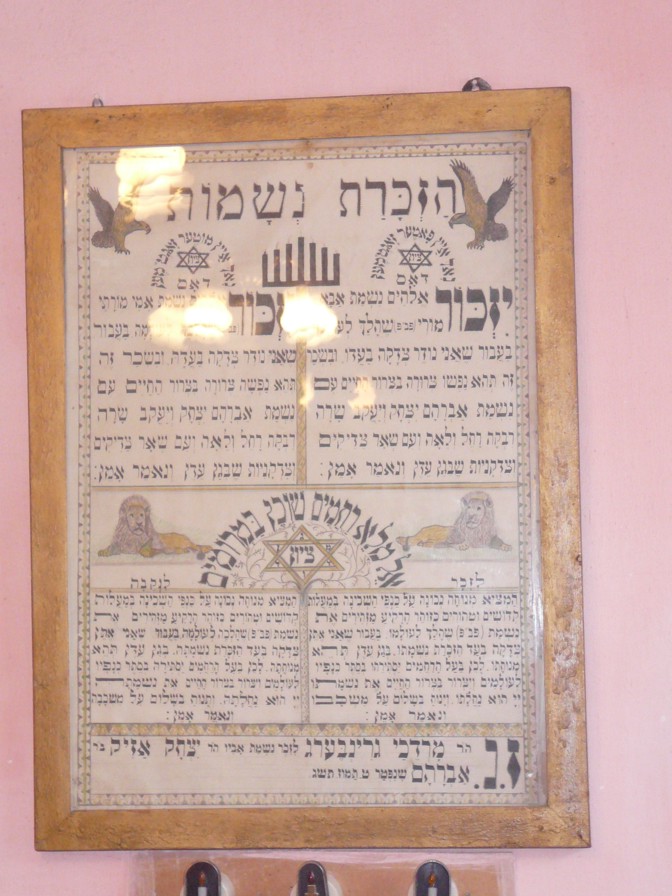 הַזְכָּרַת נְשָׁמוֹת
זאל איין פאטער זאגט מען
ציון
דאס
זאל איין מוטער זאגט מען
ציון
דאס
יִזְכּוֹר אלהים נשמת אבא
מורי (פב״פ) שהלך
בעבור שאני נודר צדקה בעדו ובשכר
זה תהא נפשו צרורה בצרור החיים עם
נשמת אברהם יצחק ויעקב שרה
רבקה רחל ולאה ועם שאר צדיקים
וצדקניות שבגן עדן ונאמר אמן:
יזכור נשמת אמי מורתי
בעבור
שאני נודר צדקה בעדה ובשכר זה
תהא נפשה צרורה בצרור החיים עם
נשמת אברהם יצחק ויעקב שרה
רבקה רחל ולאה ועם שאר צדיקים
וצדקניות שבגן עדן ונאמר אמן:
אל מלא רחמים שוכן במרומים
ציון
לזכר
המציא מנוחה נכונה על כנפי השכינה במעלות
קדושים וטהורים כזוהר הרקיע מזהירים את
נשמת (פב״פ) שהלך לעולמו בעבור שאני אתן
צדקה בעד הזכרת נשמתו בגן עדן תהא
מנוחתו לכן בעל הרחמים יסתירו בסתר כנפיו
לעולמים ויצרור בצרור החיים את נשמתו
יי הוא נחלתו וינוח בשלום על משכבו
ונאמר אמן:
לנקבה
המציא מנוחה נכונה על כנפי השכינה במעלות
קדושים וטהורים כזוהר הרקיע מזהירים את
נשמת (פב״פ) שהלכה לעולמה בעבור שאני אתן
צדקה בעד הזכרת נשמתה בגן עדן תהא
מנוחתה לכן בעל הרחמים יסתירה בסתר כנפיו
לעולמים ויצרור בצרור החיים את נשמתה
יי הוא נחלתה ותנוח בשלום על משכבה
ונאמר אמן:
ז.נ. הר׳ מרדכי גרינבערג לזכר נשמת אביו הר׳ יצחק אזיק ב״ר
אברהם שנפטר ט׳ תמוז תשג